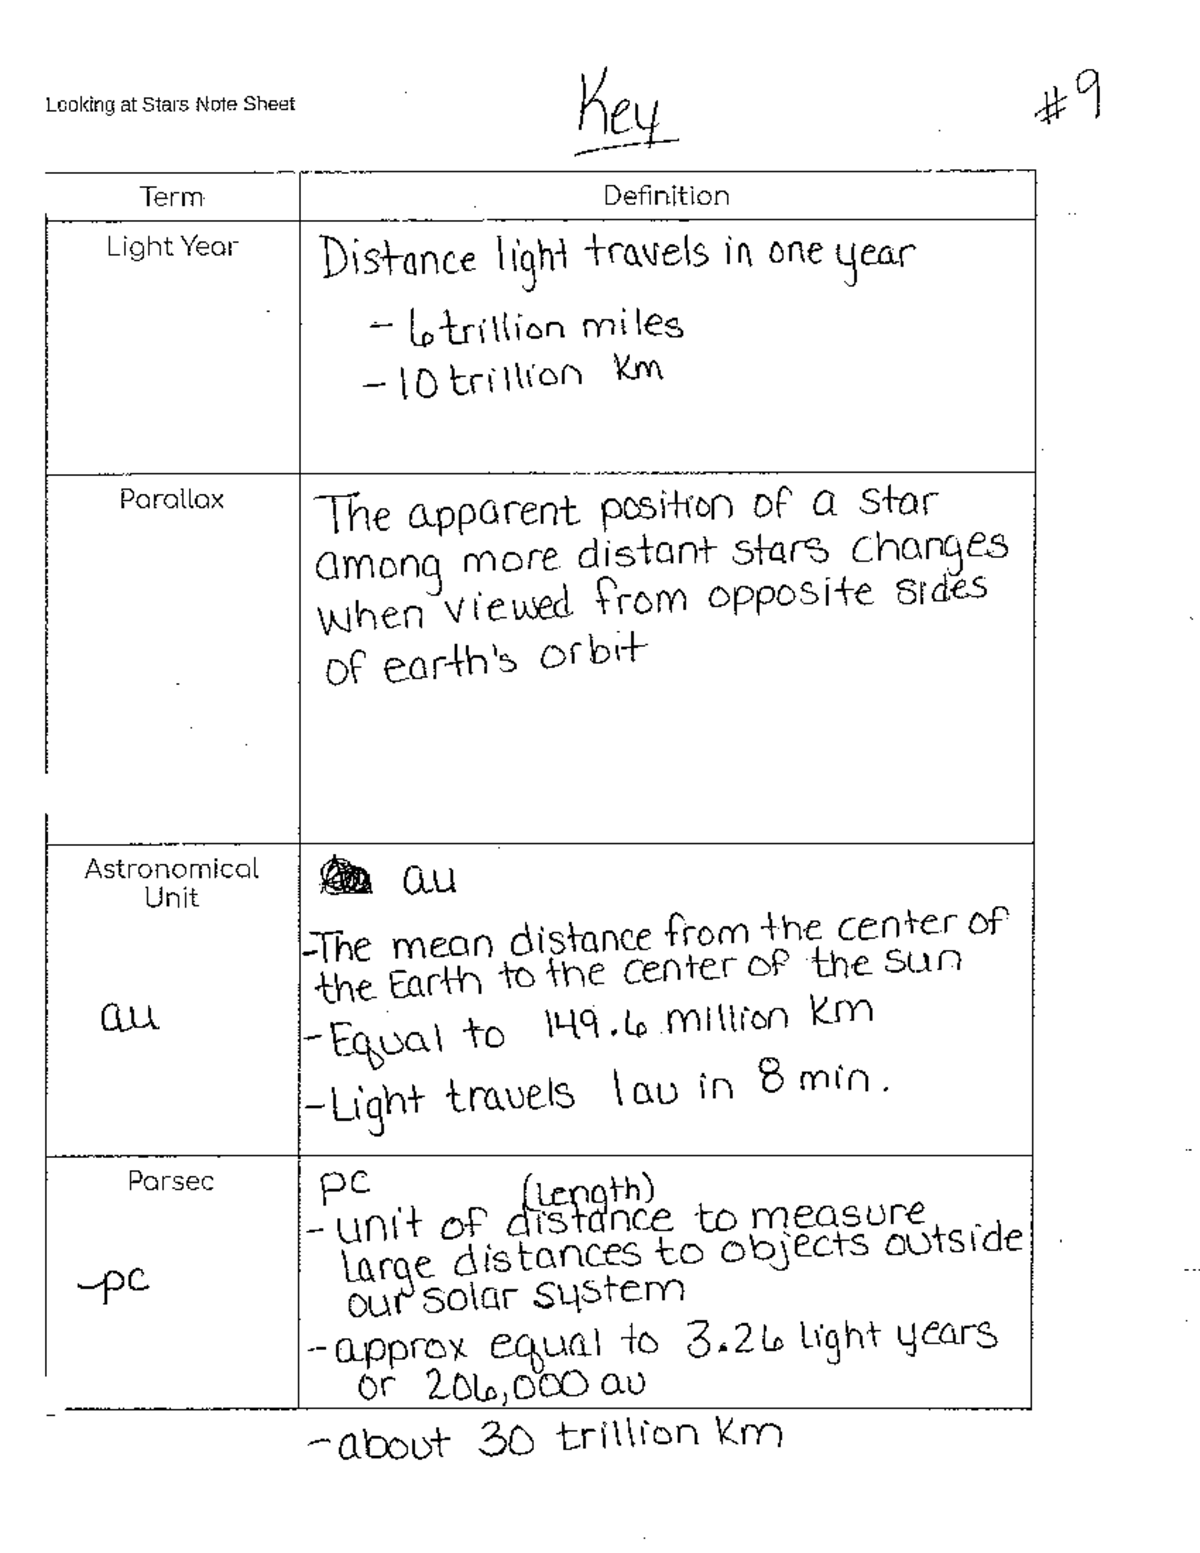 Looking at Stars Note Sheet
Key
#9
Term
Definition
Light Year
Distance light travels in one year
- 6 trillion miles
- 10 trillion km
Parallax
The apparent position of a star
among more distant stars changes
when viewed from opposite sides
of earth's orbit
Astronomical
Unit
au
au
-The mean distance from the center of
the Earth to the center of the sun
- Equal to 149.6 million km
- Light travels 1au in 8 min.
Parsec
-pc
pc
(Length)
- unit of distance to measure
large distances to objects outside
our solar system
- approx equal to 3.26 light years
or 206,000 au
- about 30 trillion km